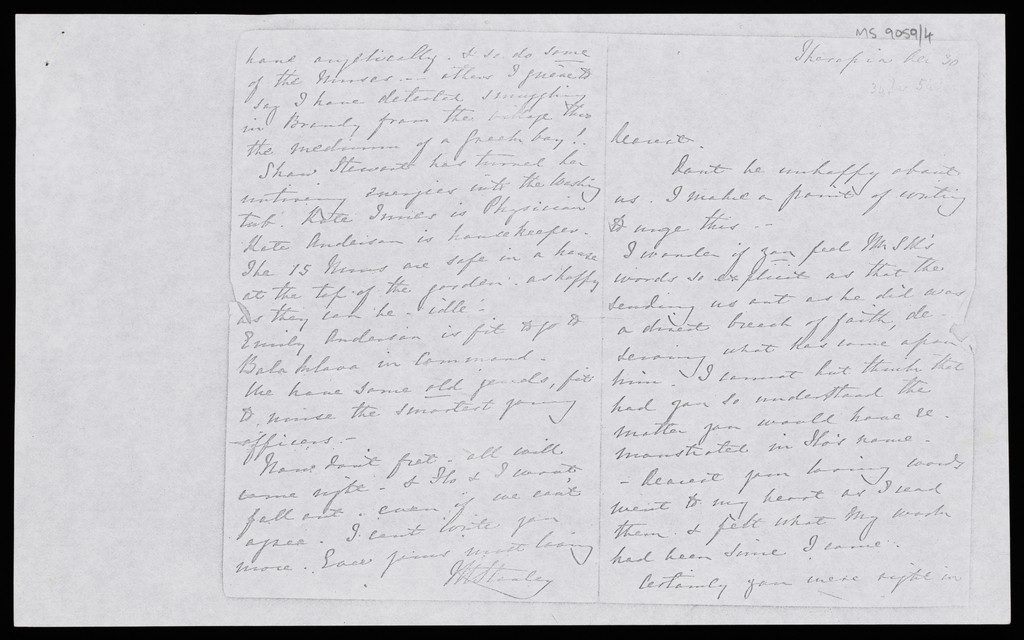 MS 9059/4
Therapia Dec 30
Dearest.
Dont be unhappy about
us. I make a point of writing
to urge this --
I wonder if you feel Mr SH's
words so explicit as that the
sending us out as he did was
a direct breach of faith, de-
serving what has come upon
him. I cannot but think that
had you so understood the
matter you would have re-
monstrated in Flo's name -
- Dearest your loving words
went to my heart as I read
them & felt what my work
had been since I came.
Certainly you were right in
have angelically. & so do some
of the Nurses -- others I grieve to
say I have detected smuggling
in Brandy from the village thro
the medium of a Greek boy!.
Shaw Stewart has turned her
untiring energies into the Washing
tub. Kate Innes is Physician
Kate Anderson is housekeeper.
The 15 Nuns are safe in a house
at the top of the garden. as happy
as they can be - idle -
Emily Anderson is fit to go to
Balaklava in Command -
We have some old jewels, fit
to nurse the smartest young
officers. -
Now dont fret - all will
come right - & Flo & I wont
fall out - even if we cant
agree. I cant write you
more. Ever yours most loving
MStanley